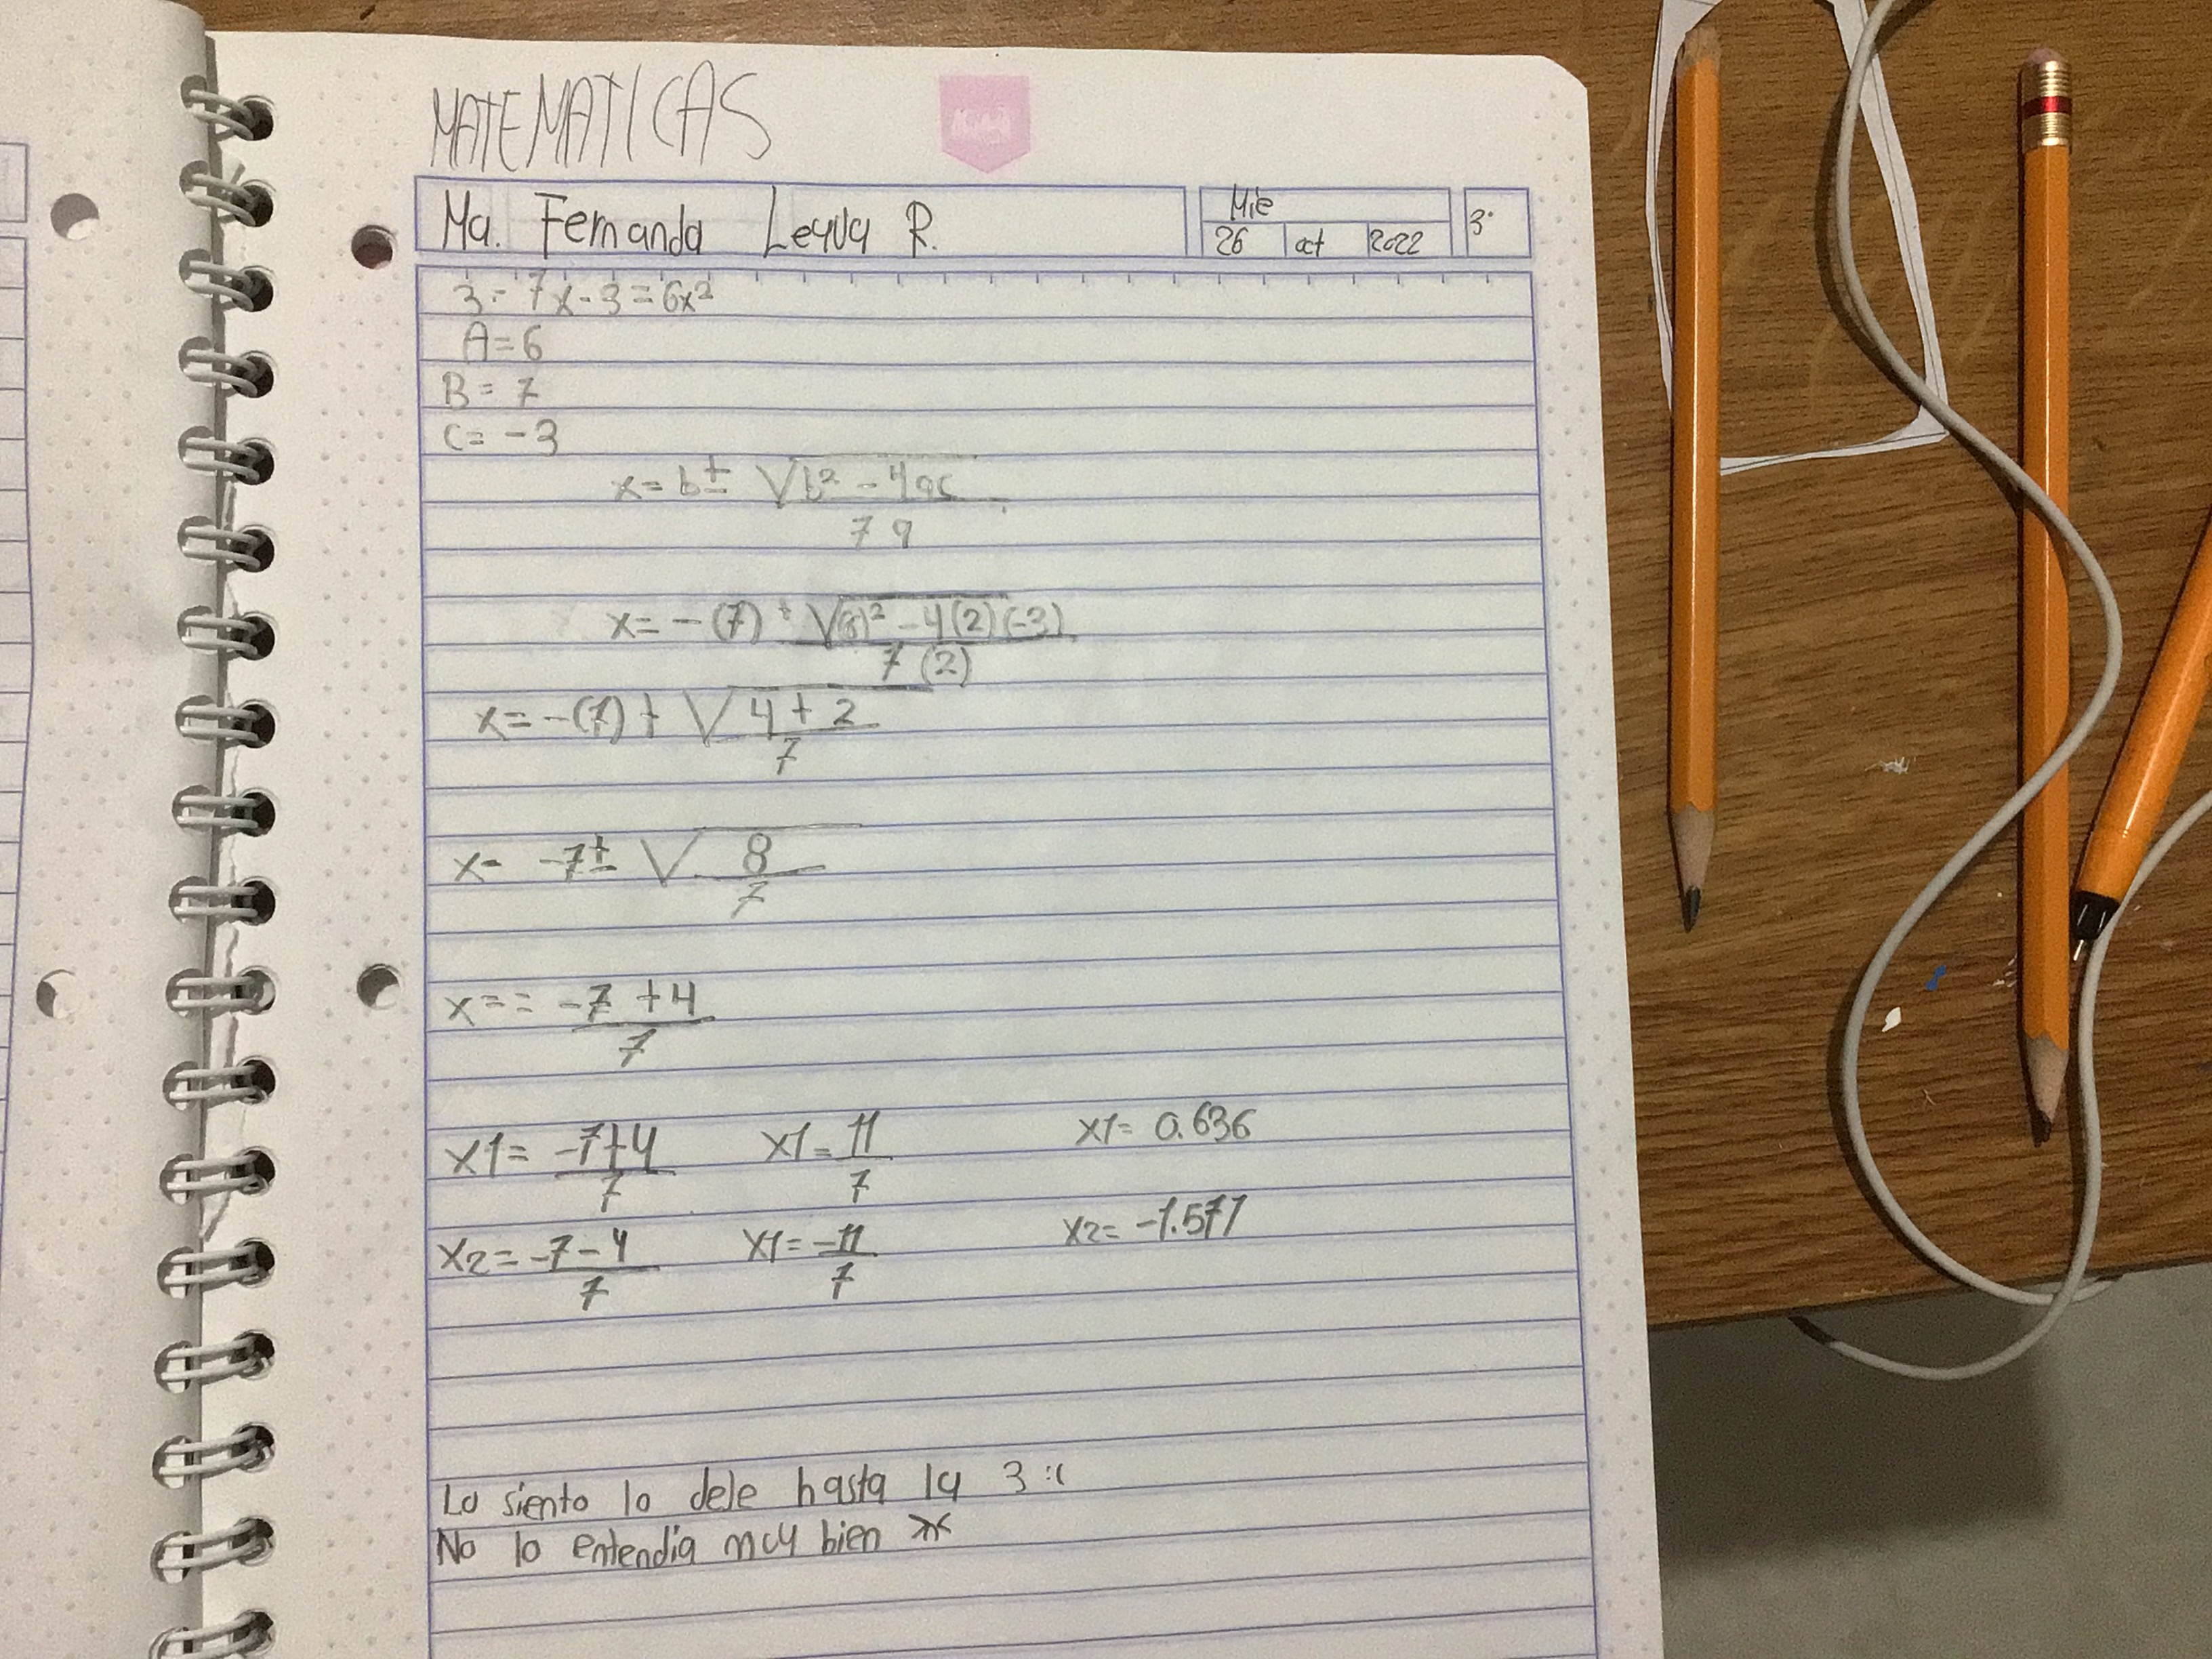 MATEMATICAS
Ma. Fernanda Leyva R.
Mie
26 oct 2022
3°
3.- 7x-3=6x²
A=6
B=7
C=-3
x=b± √b²-4ac
7a
x=-(7)± √(8)²-4(2)(-3)
7(2)
x=-(7)+ √4+2
7
x= -7± √8
7
x== -7+4
7
x1= -7+4 x1= 11 x1= 0.636
7 7
x2= -7-4 x1= -11 x2= -1.571
7 7
Lo siento lo dele hasta la 3 :(
No lo entendia muy bien